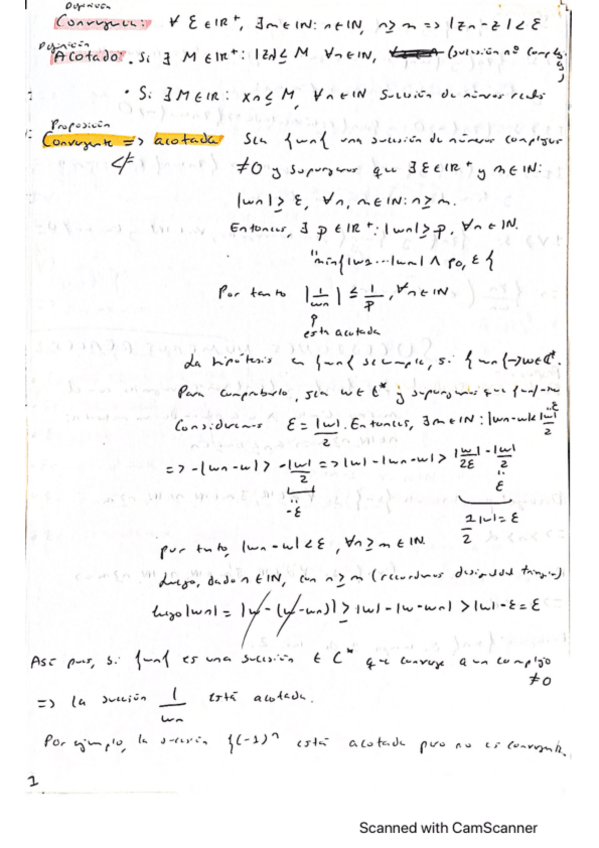 Definición
Convergencia: ∀ ε ∈ IR⁺, ∃ m ∈ IN: n ∈ IN, n ≥ m => |zn - z| < ε
Definición
Acotado: · Si ∃ M ∈ IR⁺: |zn| ≤ M ∀n ∈ IN, (sucesión nº complejos)
· Si ∃ M ∈ IR: xn ≤ M, ∀n ∈ IN Sucesión de números reales
Proposición
Convergente => acotada Sea {wn{ una sucesión de números complejos
≠0 y supongamos que ∃ ε ∈ IR⁺ y m ∈ IN:
|wn| ≥ ε, ∀n, m ∈ IN: n ≥ m.
Entonces, ∃ p ∈ IR⁺: |wn| ≥ p, ∀n ∈ IN.
min{|w1 ... |wm| ∧ p0, ε{
Por tanto |1/wn| ≤ 1/p, ∀n ∈ IN
está acotada
La hipótesis en {wn{ se cumple, si {wn{ -> w ∈ C*.
Para comprobarlo, sea w ∈ C* y supongamos que {wn{ -> w
Consideremos ε = |w|/2. Entonces, ∃ m ∈ IN: |wn - w| < |w|/2 = ε
=> -|wn - w| > -|w|/2 => |w| - |wn - w| > |w| - |w|/2
-ε ε
1/2 |w| = ε
por tanto, |wn - w| < ε, ∀n ≥ m ∈ IN.
Luego, dado n ∈ IN, con n ≥ m (recordemos desigualdad triangular)
luego |wn| = |w - (w - wn)| ≥ |w| - |w - wn| > |w| - ε = ε
Así pues, si {wn{ es una sucesión ∈ C* que converge a un complejo
≠0
=> la sucesión 1/wn está acotada.
Por ejemplo, la sucesión {(-1)ⁿ está acotada pero no es convergente.
1
Scanned with CamScanner